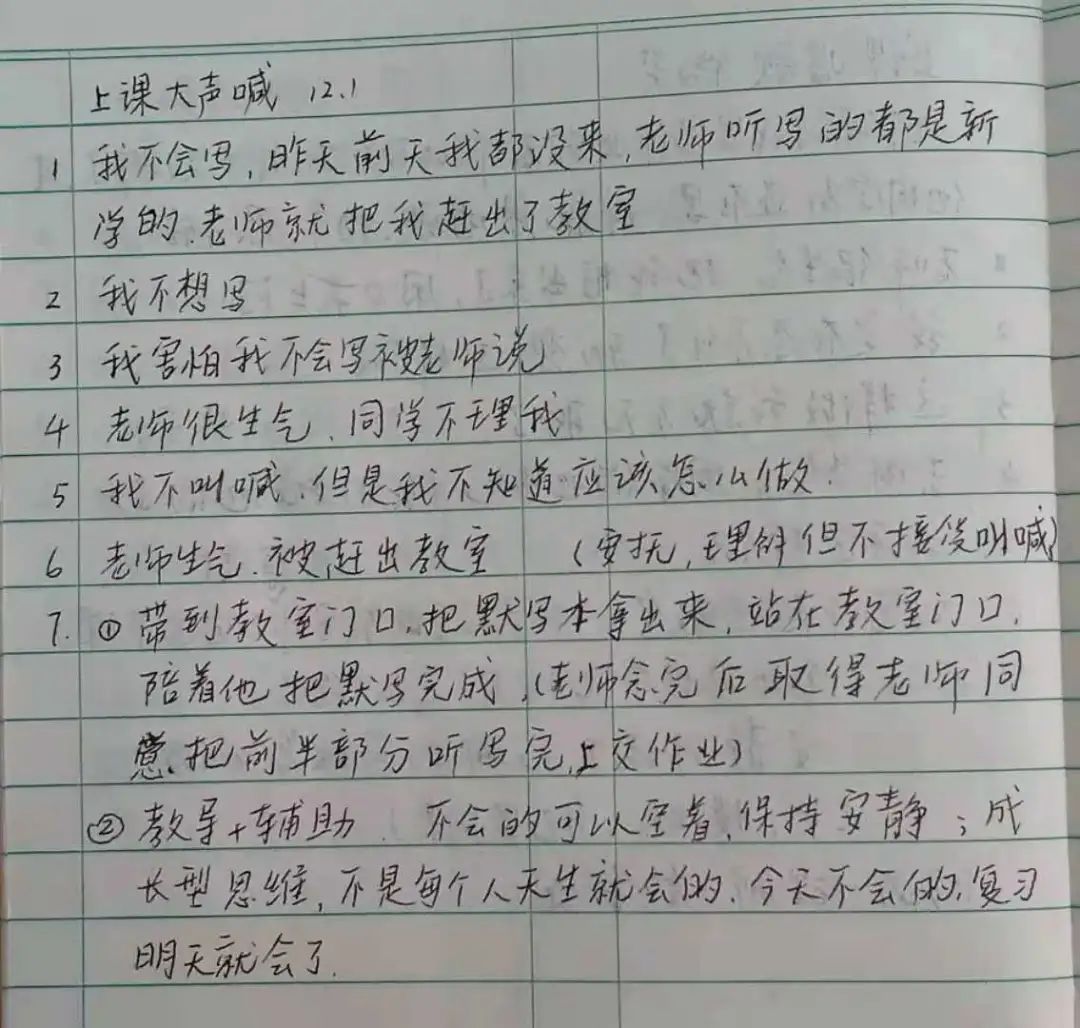 上课大声喊 12.1
1 我不会写,昨天前天我都没来,老师听写的都是新
学的.老师就把我赶出了教室
2 我不想写
3 我害怕我不会写被老师说
4 老师很生气、同学不理我
5 我不叫喊.但是我不知道应该怎么做.
6 老师生气.被赶出教室 (安抚,理解但不接受叫喊)
7. ① 带到教室门口,把默写本拿出来,站在教室门口,
陪着他把默写完成.(老师念完后取得老师同
意.把前半部分听写完,上交作业)
② 教导+辅助. 不会的可以空着,保持安静;成
长型思维,不是每个人天生就会的.今天不会的,复习
明天就会了.